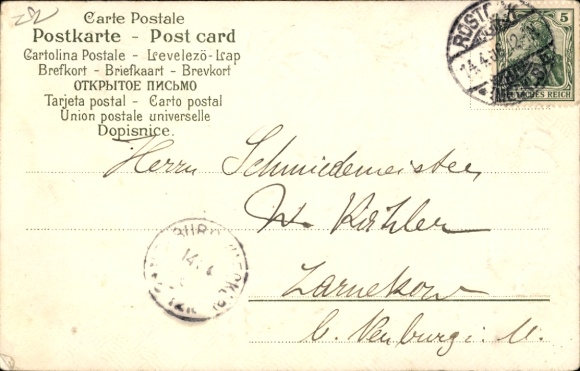 Carte Postale
Postkarte - Post card
Cartolina Postale - Levelezö-Lap
Brefkort - Briefkaart - Brevkort
ОТКРЫТОЕ ПИСЬМО
Tarjeta postal - Carto postal
Union postale universelle
Dopisnice.
5
ROSTOCK
DEUTSCHES REICH
Herrn Schmiedemeister
W. Kähler
Zarnekow
b. Neuburg i. M.
14.4